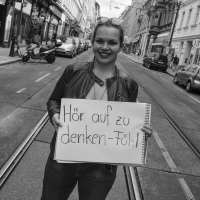 Hör auf zu
denken-Fühl